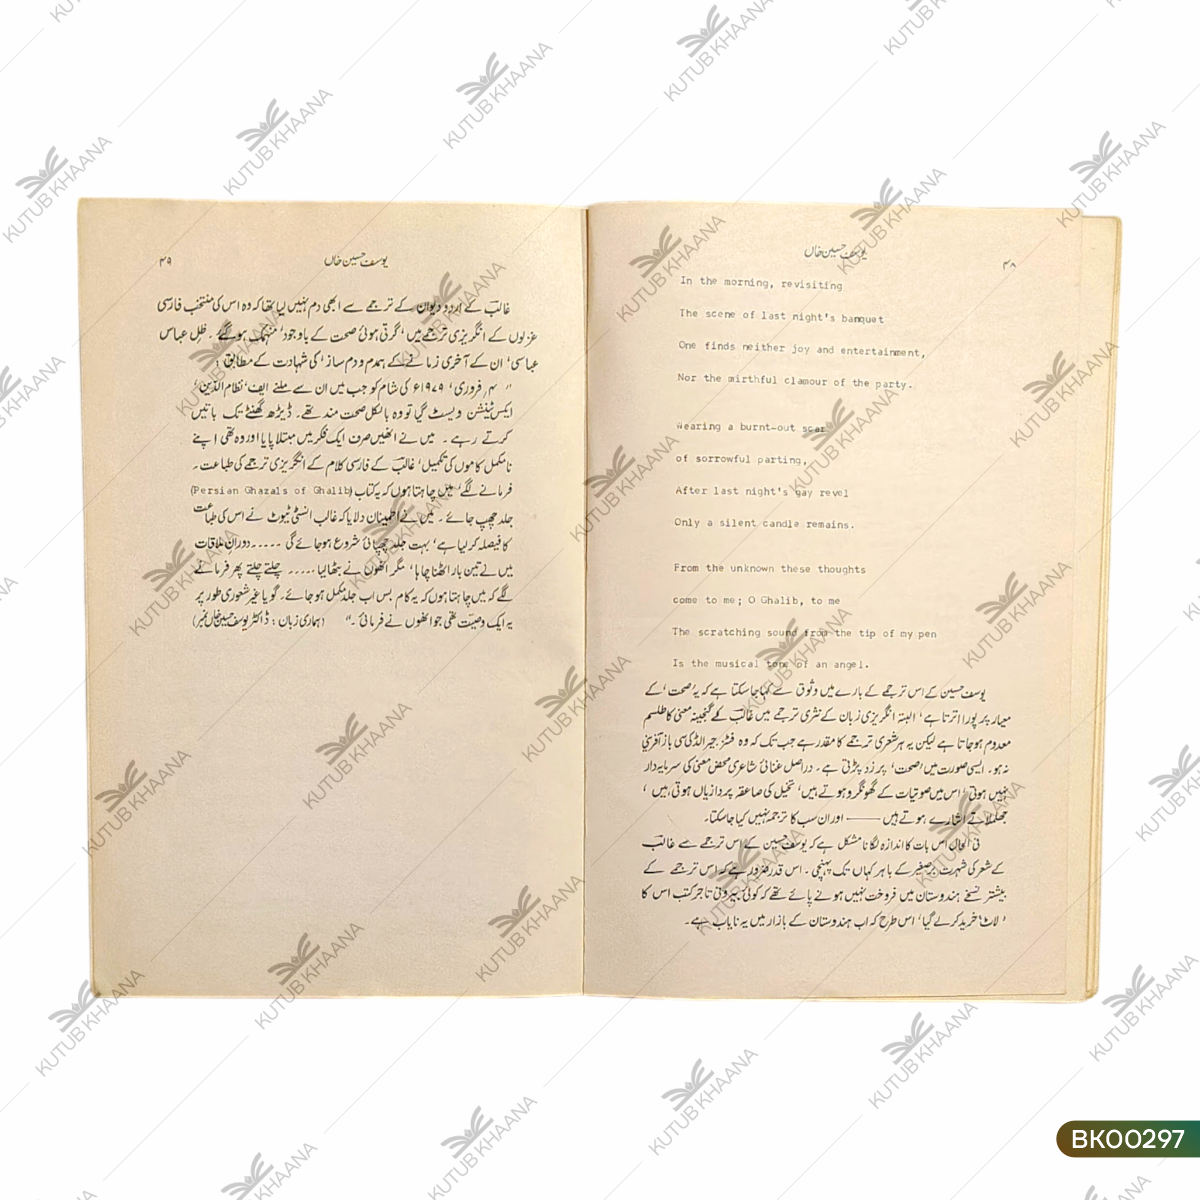 ۴۸
یوسف حسین خاں
In the morning, revisiting
The scene of last night's banquet
One finds neither joy and entertainment,
Nor the mirthful clamour of the party.
Wearing a burnt-out scar
of sorrowful parting,
After last night's gay revel
Only a silent candle remains.
From the unknown these thoughts
come to me; O Ghalib, to me
The scratching sound from the tip of my pen
Is the musical tone of an angel.
یوسف حسین کے اس ترجمے کے بارے میں وثوق سے کہا جا سکتا ہے کہ یہ 'صحت' کے
معیار پر پورا اترتا ہے' البتہ انگریزی زبان کے نثری ترجمے میں غالب کے گنجینہ معنی کا طلسم
معدوم ہو جاتا ہے لیکن یہ ہر شعری ترجمے کا مقدر ہے جب تک کہ وہ فٹز جیرالڈ کی سی باز آفرینی
نہ ہو۔ ایسی صورت میں 'صحت' پر زد پڑتی ہے۔ دراصل غنائی شاعری محض معنی کی سرمایہ دار
نہیں ہوتی' اس میں صوتیات کے گھونگرو ہوتے ہیں' تخیل کی صاعقہ پردازیاں ہوتی ہیں'
جھلملاتے اشارے ہوتے ہیں —— اور ان سب کا ترجمہ نہیں کیا جا سکتا۔
فی الحال اس بات کا اندازہ لگانا مشکل ہے کہ یوسف حسین کے اس ترجمے سے غالب
کے شعر کی شہرت برصغیر کے باہر کہاں تک پہنچی۔ اس قدر ضرور ہے کہ اس ترجمے کے
بیشتر نسخے ہندوستان میں فروخت نہیں ہونے پائے تھے کہ کوئی بیرونی تاجر کتب اس کا
'لاٹ' خرید کر لے گیا' اس طرح کہ اب ہندوستان کے بازار میں یہ نایاب ہے۔
یوسف حسین خاں
۴۹
غالب کے اردو دیوان کے ترجمے سے ابھی دم نہیں لیا تھا کہ وہ اس کی منتخب فارسی
غزلوں کے انگریزی ترجمے میں' گرتی ہوئی صحت کے باوجود' منہمک ہو گئے۔ ظل عباس
عباسی' ان کے آخری زمانے کے ہمدم و دم ساز' کی شہادت کے مطابق:
" ۴؍ فروری' ۱۹۷۹ء کی شام کو جب میں ان سے ملنے ایف' نظام الدین'
ایکس ٹینشن ویسٹ گیا تو وہ بالکل صحت مند تھے۔ ڈیڑھ گھنٹے تک باتیں
کرتے رہے۔ میں نے انھیں صرف ایک فکر میں مبتلا پایا اور وہ تھی اپنے
نامکمل کاموں کی تکمیل' غالب کے فارسی کلام کے انگریزی ترجمے کی طباعت۔
فرمانے لگے' میں چاہتا ہوں کہ یہ کتاب (Persian Ghazals of Ghalib)
جلد چھپ جائے۔ میں نے اطمینان دلایا کہ غالب انسٹی ٹیوٹ نے اس کی طباعت
کا فیصلہ کر لیا ہے' بہت جلد چھپائی شروع ہو جائے گی ..... دوران ملاقات
میں نے تین بار اٹھنا چاہا' مگر انھوں نے بٹھا لیا ..... چلتے چلتے پھر فرمانے
لگے کہ میں چاہتا ہوں کہ یہ کام بس اب جلد مکمل ہو جائے۔ گویا غیر شعوری طور پر
یہ ایک وصیت تھی جو انھوں نے فرمائی۔" (ہماری زبان: ڈاکٹر یوسف حسین خاں نمبر)
KUTUB KHAANA
BK00297